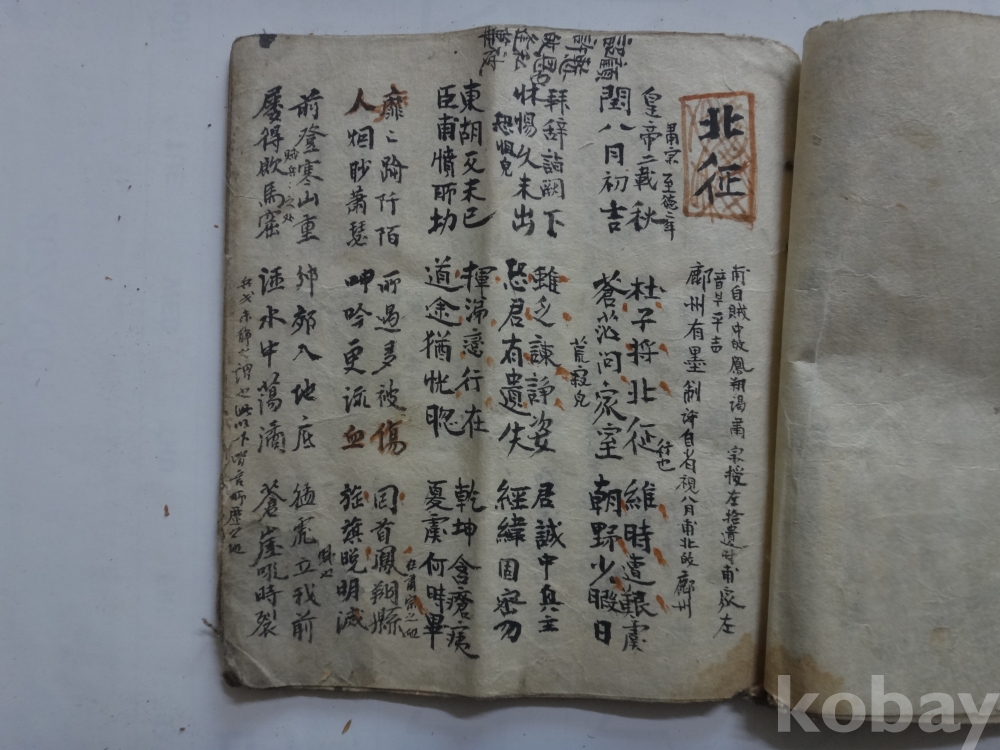 北征
甫自賊中故鳳翔謁肅宗授左拾遺時甫家在
鄜州有墨制許自省視八月甫北故鄜州
皇帝二載秋
肅宗至德二年
閏八月初吉
杜子將北征
行也
蒼茫問家室
荒寂皃
維時遭艱虞
朝野少暇日
拜辭詣闕下
怵惕久未出
恐懼皃
雖乏諫諍姿
恐君有遺失
君誠中興主
經緯固密勿
東胡反未已
臣甫憤所切
揮涕戀行在
道途猶恍惚
乾坤含瘡痍
憂虞何時畢
靡〻踰阡陌
人烟眇蕭瑟
所過多被傷
呻吟更流血
回首鳳翔縣
在肅宗之地
旌旗晚明滅
前登寒山重
屢得飲馬窟
邠郊入地底
涇水中蕩潏
猛虎立我前
蒼崖吼時裂
kobay